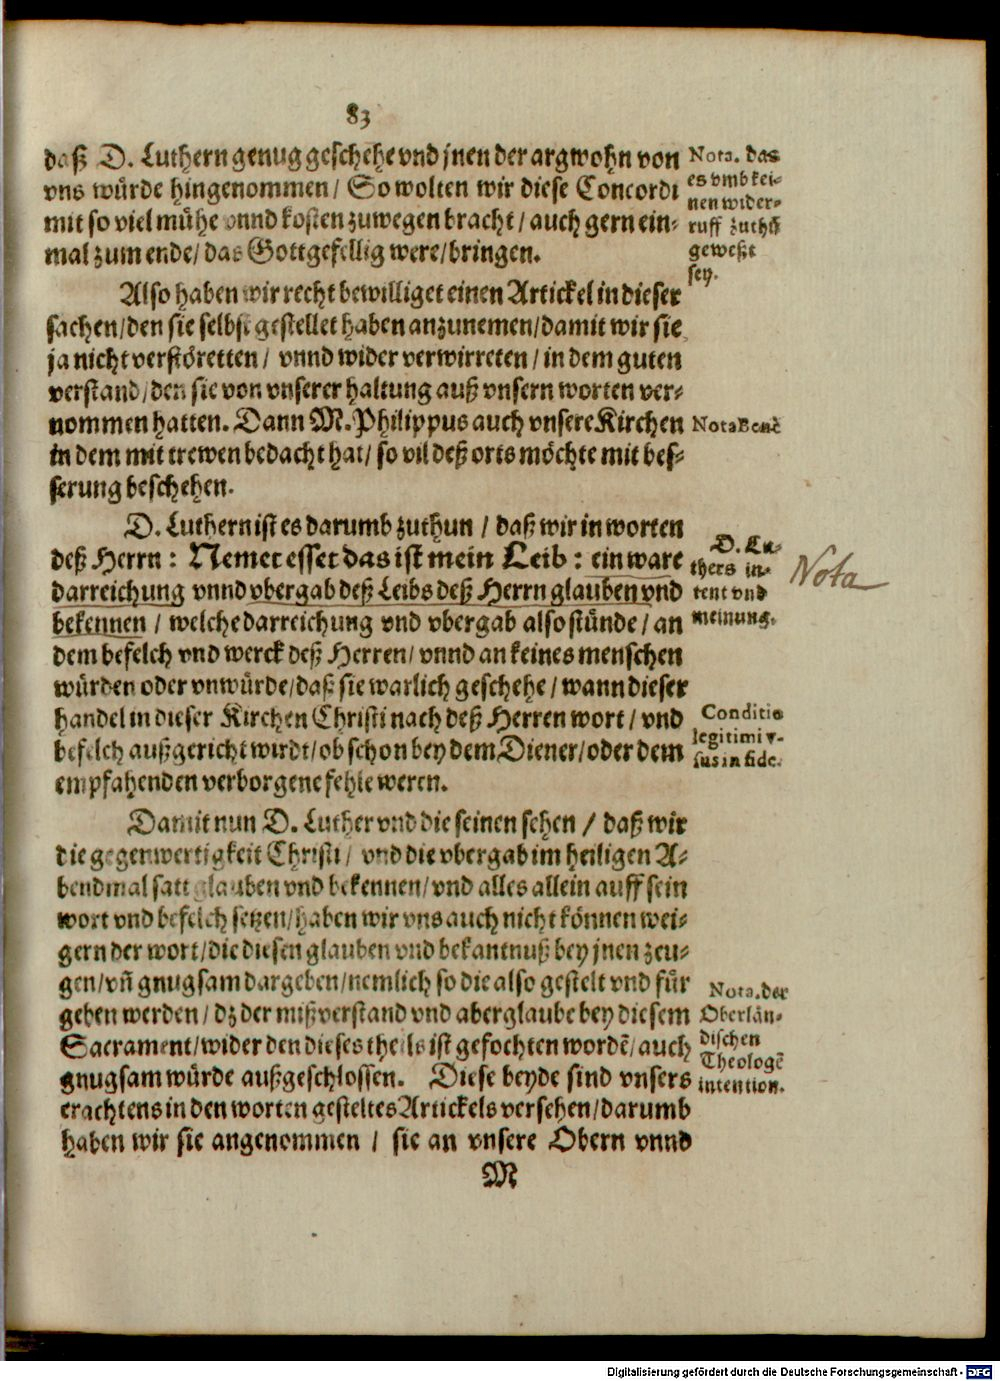 83
daß D. Luthern genug geschehe vnd jnen der argwohn von
vns würde hingenommen / So wolten wir diese Concordi
mit so viel mühe vnnd kosten zuwegen bracht / auch gern ein-
mal zum ende / das Gottgefellig were / bringen.
Nota. das
es vmb kei-
nen wider-
ruff zuthū
geweßt
sey.
Also haben wir recht bewilliget einen Artickel in dieser
sachen / den sie selbst gestellet haben anzunemen / damit wir sie
ja nicht verstöretten / vnnd wider verwirreten / in dem guten
verstand / den sie von vnserer haltung auß vnsern worten ver-
nommen hatten. Dann M. Philippus auch vnsere Kirchen
in dem mit trewen bedacht hat / so vil deß orts möchte mit bes-
serung beschehen.
Nota Benè
D. Luthern ist es darumb zuthun / daß wir in worten
deß Herrn : Nemet esset das ist mein Leib : ein ware
darreichung vnnd vbergab deß Leibs deß Herrn glauben vnd
bekennen / welche darreichung vnd vbergab also stünde / an
dem befelch vnd werck deß Herren / vnnd an keines menschen
würden oder vnwürde / daß sie warlich geschehe / wann dieser
handel in dieser Kirchen Christi nach deß Herren wort / vnd
befelch außgericht wirdt / ob schon bey dem Diener / oder dem
empfahenden verborgene fehle weren.
D. Lu-
thers in-
tent vnd
meinung.
Nota
Conditio
legitimi v-
sus in fide.
Damit nun D. Luther vnd die seinen sehen / daß wir
die gegenwertigkeit Christi / vnd die vbergab im heiligen A-
bendmal satt glauben vnd bekennen / vnd alles allein auff sein
wort vnd befelch setzen / haben wir vns auch nicht können wei-
gern der wort / die diesen glauben vnd bekantnuß bey jnen zeu-
gen / vñ gnugsam dargeben / nemlich so die also gestelt vnd für
geben werden / dz der mißverstand vnd aberglaube bey diesem
Sacrament / wider den dieses theils ist gefochten wordē / auch
gnugsam würde außgeschlossen. Diese beyde sind vnsers
erachtens in den worten gesteltes Artickels versehen / darumb
haben wir sie angenommen / sie an vnsere Obern vnnd
Nota. der
Oberlän-
dischen
Theologē
intention.
M
Digitalisierung gefördert durch die Deutsche Forschungsgemeinschaft - DFG